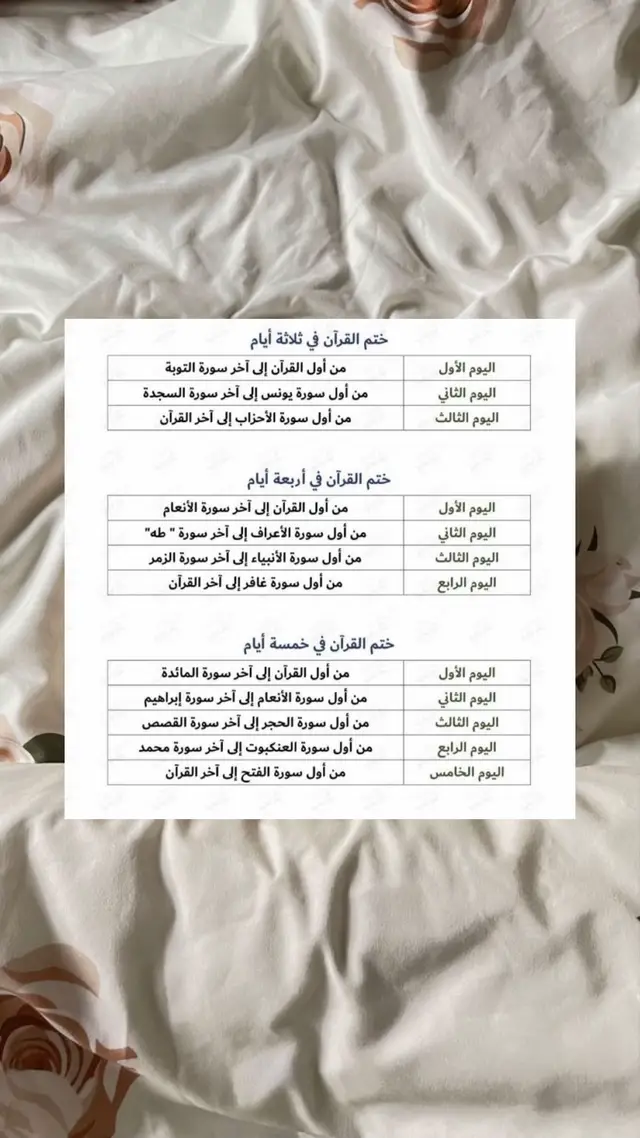 ختم القرآن في ثلاثة أيام
اليوم الأول من أول القرآن إلى آخر سورة التوبة
اليوم الثاني من أول سورة يونس إلى آخر سورة السجدة
اليوم الثالث من أول سورة الأحزاب إلى آخر القرآن
ختم القرآن في أربعة أيام
اليوم الأول من أول القرآن إلى آخر سورة الأنعام
اليوم الثاني من أول سورة الأعراف إلى آخر سورة " طه"
اليوم الثالث من أول سورة الأنبياء إلى آخر سورة الزمر
اليوم الرابع من أول سورة غافر إلى آخر القرآن
ختم القرآن في خمسة أيام
اليوم الأول من أول القرآن إلى آخر سورة المائدة
اليوم الثاني من أول سورة الأنعام إلى آخر سورة إبراهيم
اليوم الثالث من أول سورة الحجر إلى آخر سورة القصص
اليوم الرابع من أول سورة العنكبوت إلى آخر سورة محمد
اليوم الخامس من أول سورة الفتح إلى آخر القرآن